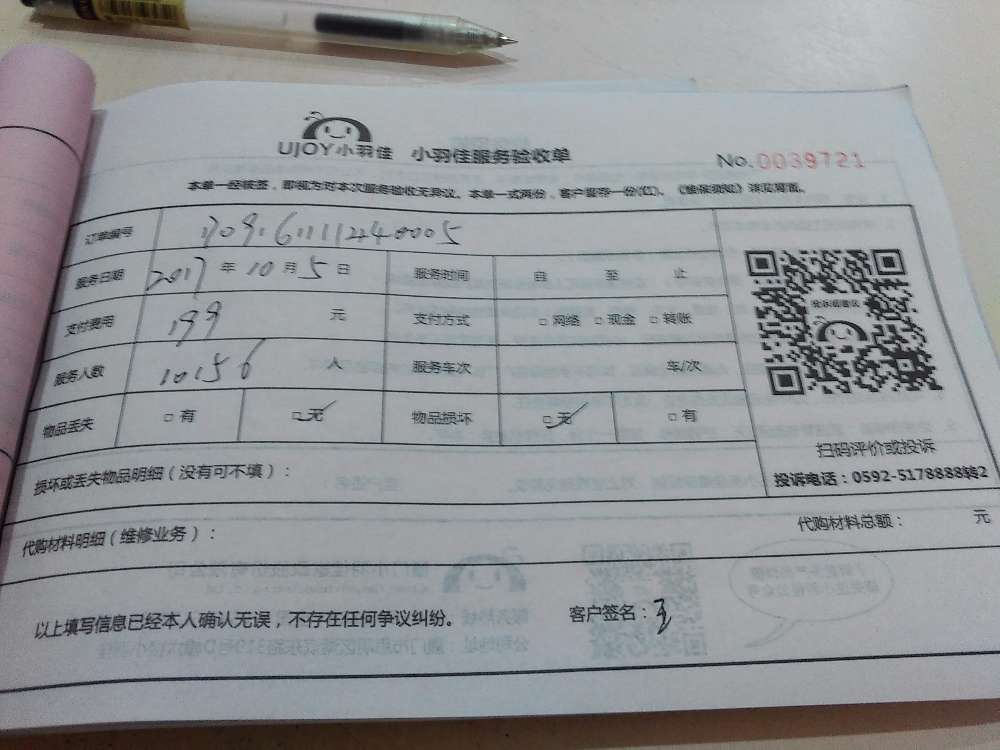 UJOY小羽佳 小羽佳服务验收单 No.0039721
本单一经核签，即视为对本次服务验收无异议。本单一式两份，客户留存一份(红)。《维保须知》详见背面。
订单编号
服务日期 2017年10月5日 服务时间 自 至 止
支付费用 199 元 支付方式 □网络 □现金 □转账
服务人数 10156 人 服务车次 车/次
物品丢失 □有 □无 物品损坏 □无 □有
扫码评价或投诉
投诉电话：0592-5178888转2
损坏或丢失物品明细（没有可不填）：
代购材料明细（维修业务）： 代购材料总额： 元
以上填写信息已经本人确认无误，不存在任何争议纠纷。 客户签名：